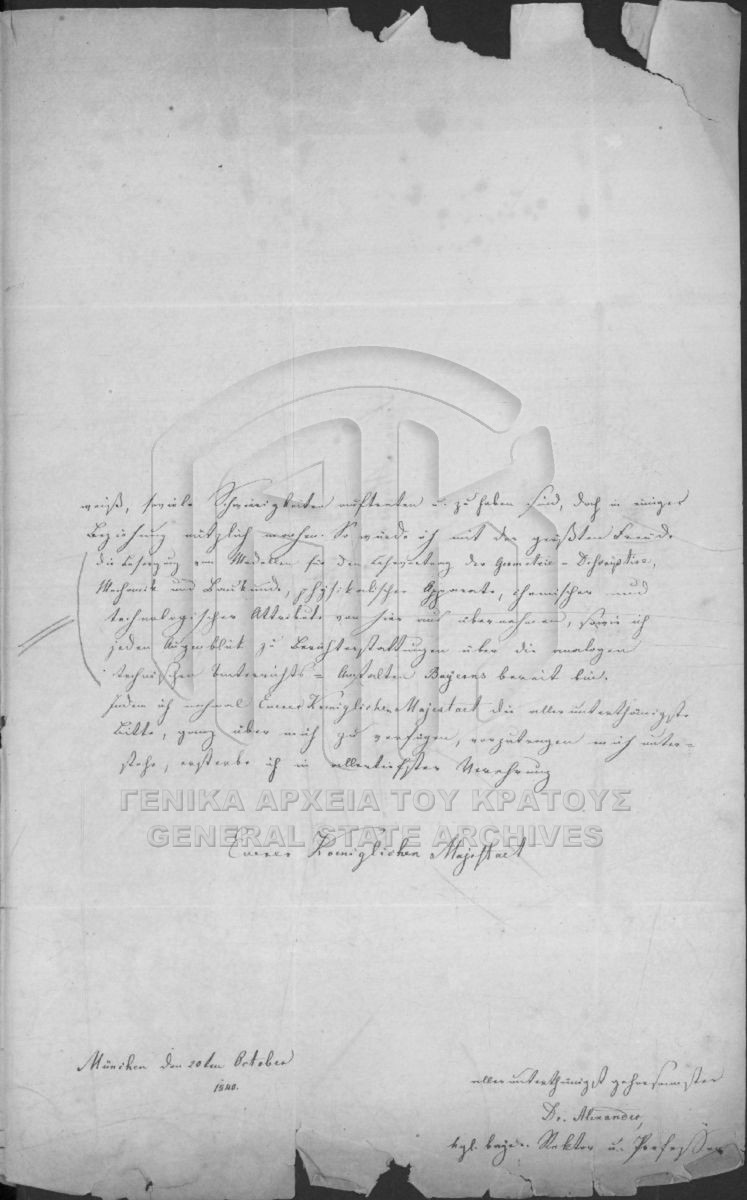 weiß, soviele Schwierigkeiten auftreten u. zu haben sind, doch in einiger
Beziehung nützlich machen. So würde ich mit der größten Freude
die Besorgung von Modellen für den Lehrvortrag der Geometrie-Descriptive,
Mechanik und Baukunde, physikalischer Apparate, chemischer und
technologischer Attribute von hier aus übernehmen, sowie ich
jeden Augenblick zu Berichterstattungen über die analogen
technischen Unterrichts=Anstalten Bayerns bereit bin.
Indem ich nochmal Euerer Königlichen Majestaet die allerunterthänigste
Bitte, ganz über mich zu verfügen, vorzutragen mich unter=
stehe, ersterbe ich in allertiefster Verehrung
ΓΕΝΙΚΑ ΑΡΧΕΙΑ ΤΟΥ ΚΡΑΤΟΥΣ
GENERAL STATE ARCHIVES
Euerer Koeniglichen Majestaet
München den 20ten October
1840.
allerunterthänigst gehorsamster
Dr. Alexander,
kgl. bayer. Rektor u. Professor